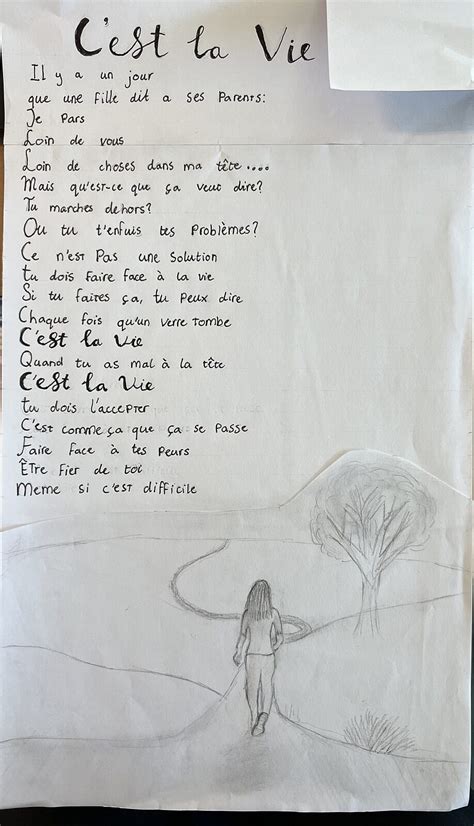 C'est la Vie
Il y a un jour
que une fille dit a ses Parents:
Je Pars
Loin de vous
Loin de choses dans ma tête....
Mais qu'est-ce que ça veut dire?
Tu marches dehors?
Ou tu t'enfuis tes Problèmes?
Ce n'est Pas une Solution
tu dois faire face à la vie
Si tu faites ça, tu Peux dire
Chaque fois qu'un verre tombe
C'est la Vie
Quand tu as mal à la tête
C'est la Vie
tu dois l'accepter
C'est comme ça que ça se Passe
Faire face à tes Peurs
Être fier de toi
Meme si c'est difficile